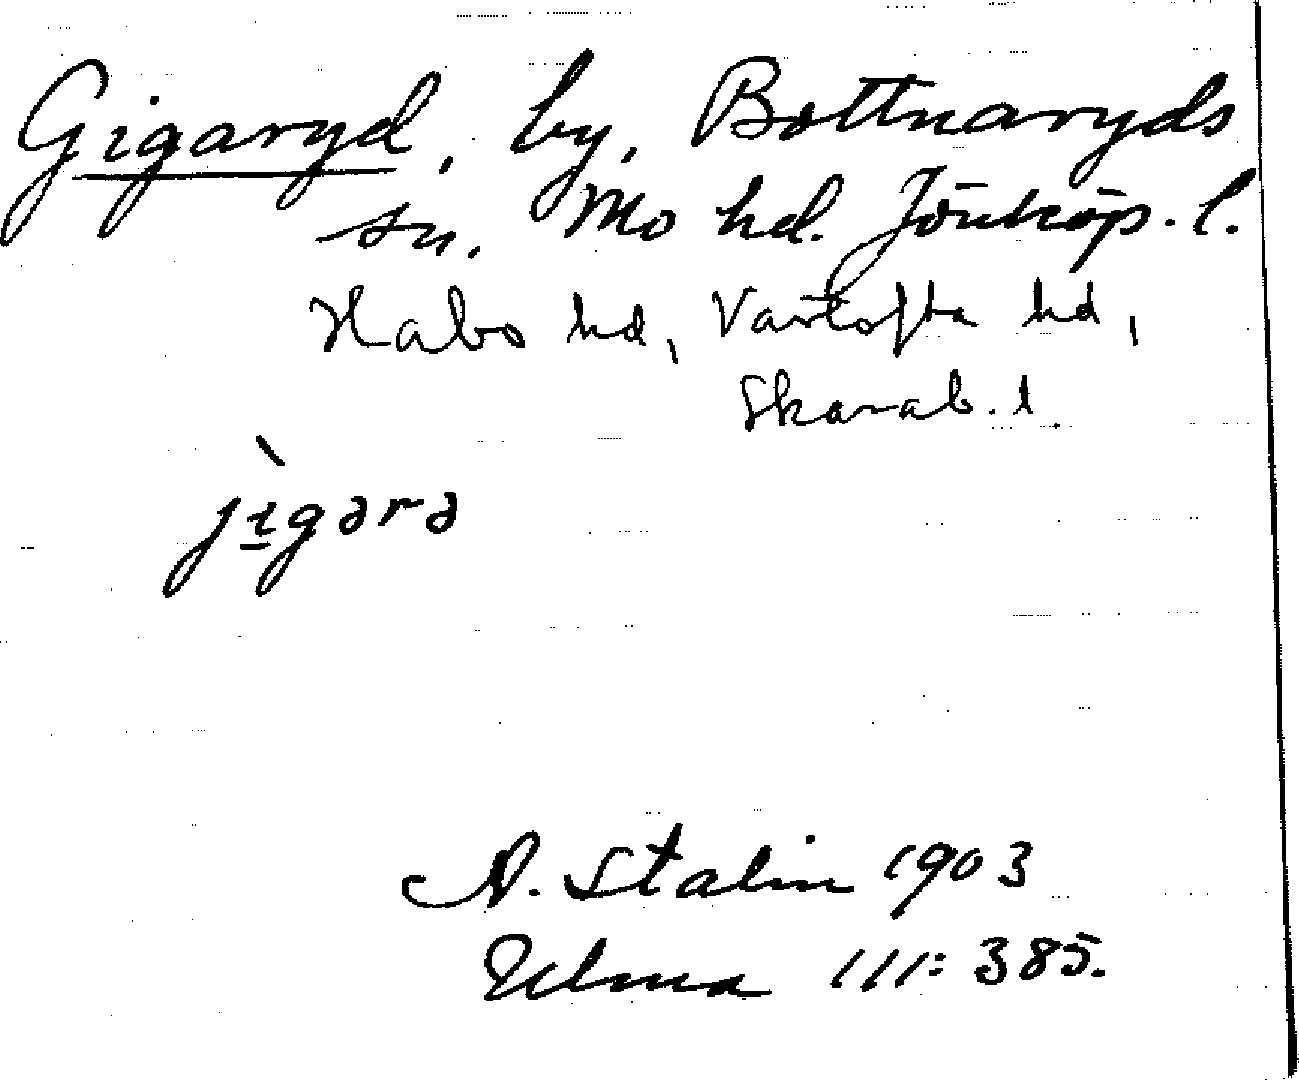 Gigaryd, by, Bottnaryds
sn. Mo hd. Jönköp. l.
Habo hd, Vartofta hd,
Skarab. l.
jìgərə
A. Stalin 1903
Ulma 111:385.